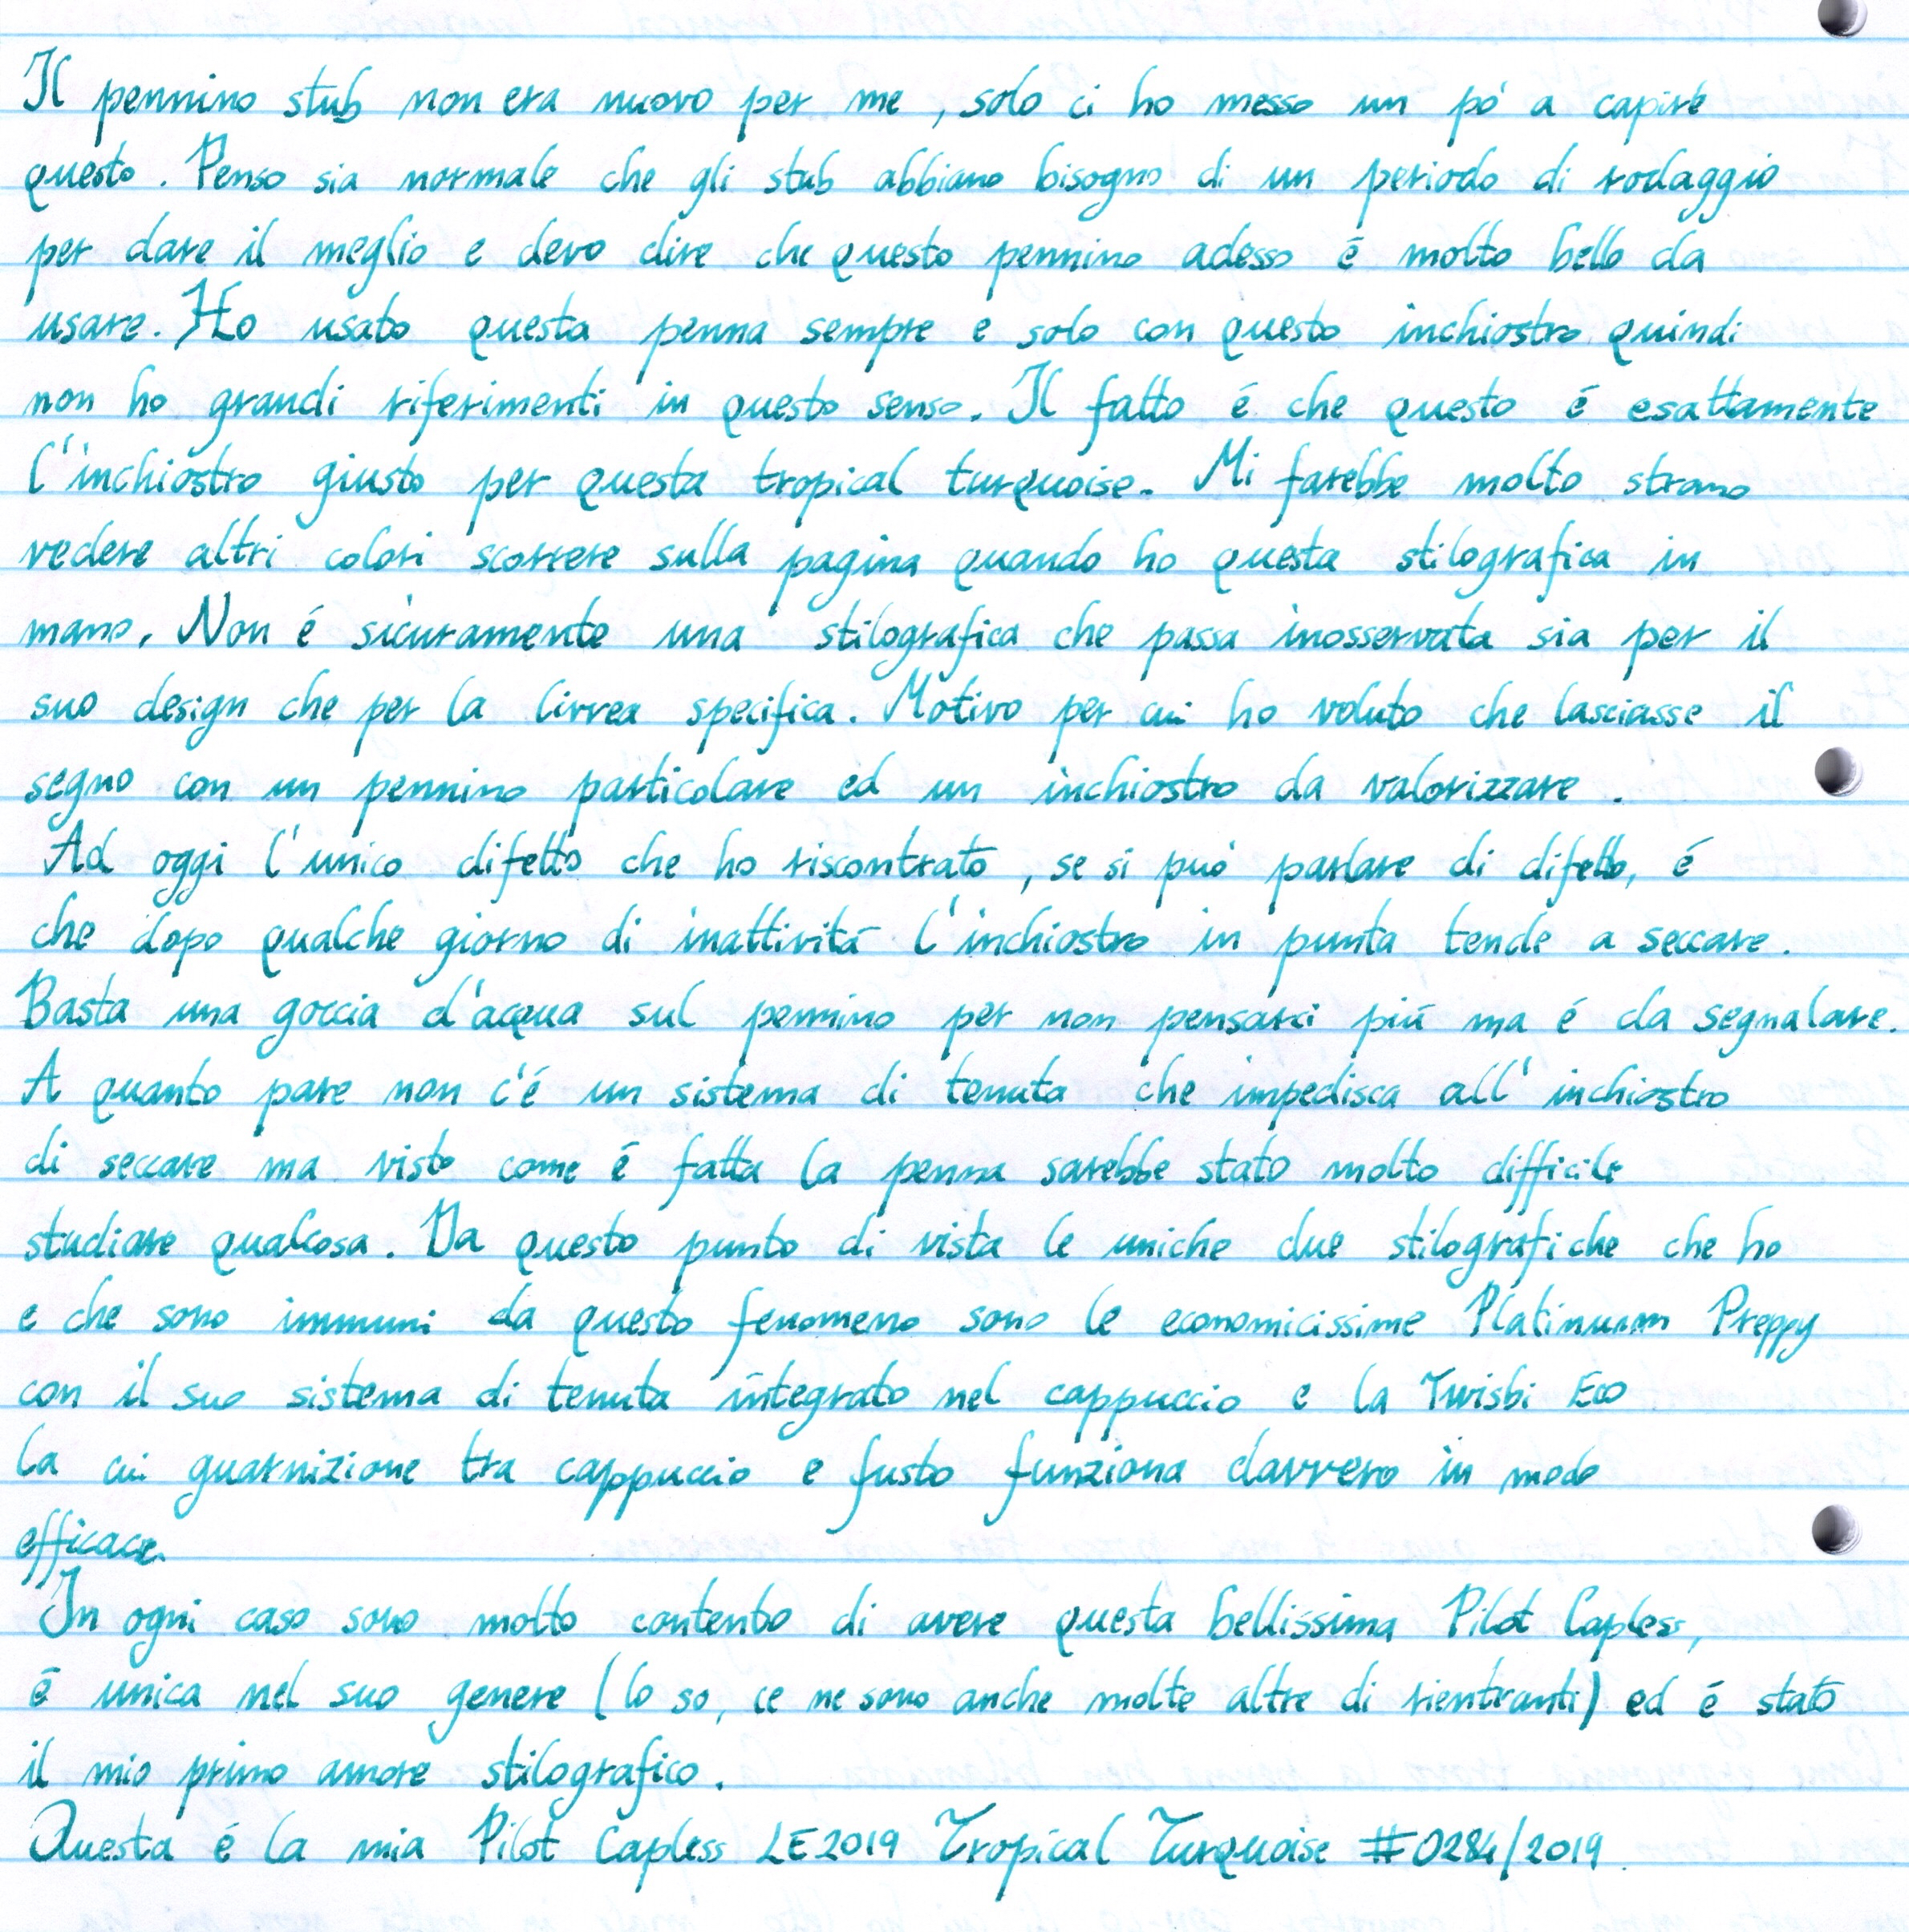 Il pennino stub non era nuovo per me, solo ci ho messo un pó a capire
questo. Penso sia normale che gli stub abbiano bisogno di un periodo di rodaggio
per dare il meglio e devo dire che questo pennino adesso é molto bello da
usare. Ho usato questa penna sempre e solo con questo inchiostro quindi
non ho grandi riferimenti in questo senso. Il fatto é che questo é esattamente
l'inchiostro giusto per questa tropical turquoise. Mi farebbe molto strano
vedere altri colori scorrere sulla pagina quando ho questa stilografica in
mano. Non é sicuramente una stilografica che passa inosservata sia per il
suo design che per la livrea specifica. Motivo per cui ho voluto che lasciasse il
segno con un pennino particolare ed un inchiostro da valorizzare.
Ad oggi l'unico difetto che ho riscontrato, se si puó parlare di difetto, é
che dopo qualche giorno di inattivitá l'inchiostro in punta tende a seccare.
Basta una goccia d'acqua sul pennino per non pensarci piú ma é da segnalare.
A quanto pare non c'é un sistema di tenuta che impedisca all'inchiostro
di seccare ma visto come é fatta la penna sarebbe stato molto difficile
studiare qualcosa. Da questo punto di vista le uniche due stilografiche che ho
e che sono immuni da questo fenomeno sono le economicissime Platinum Preppy
con il suo sistema di tenuta integrato nel cappuccio e la Twisbi Eco
la cui guarnizione tra cappuccio e fusto funziona davvero in modo
efficace.
In ogni caso sono molto contento di avere questa bellissima Pilot Capless,
é unica nel suo genere (lo so, ce ne sono anche molte altre di rientranti) ed é stato
il mio primo amore stilografico.
Questa é la mia Pilot Capless LE2019 Tropical Turquoise #0284/2019.